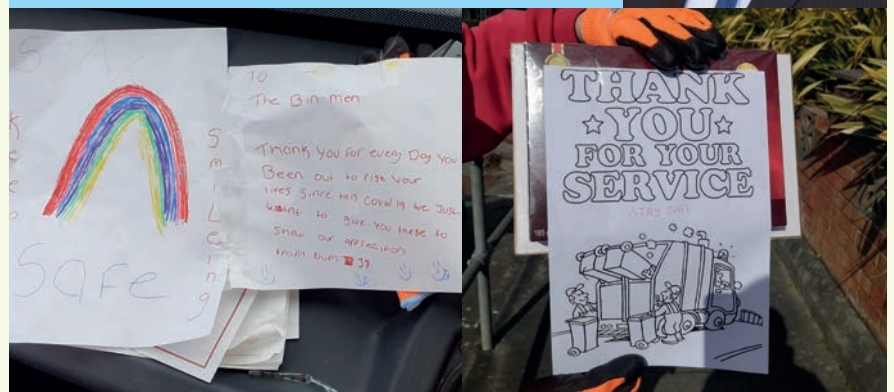 STAY
Keep
Smileing
Safe
To
The Bin men
Thank you for every Day you
Been out to risk your
lives Since this Covid 19 we Just
want to give you these to
show our
from
THANK
YOU
FOR YOUR
SERVICE
STAY SAFE